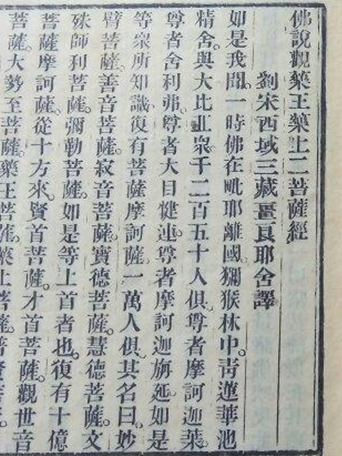 佛說觀藥王藥上二菩薩經
劉宋西域三藏畺良耶舍譯
如是我聞。一時佛在毗耶離國獼猴林中。青蓮華池
精舍。與大比丘衆。千二百五十人俱。尊者摩訶迦葉。
尊者舍利弗。尊者大目犍連。尊者摩訶迦旃延。如是
等衆所知識。復有菩薩摩訶薩。一萬人俱。其名曰。妙
臂菩薩。善音菩薩。寂音菩薩。寶德菩薩。慧德菩薩。文
殊師利菩薩。彌勒菩薩。如是等上首者也。復有十億
菩薩摩訶薩。從十方來。賢首菩薩。才首菩薩。觀世音
菩薩。大勢至菩薩。藥王菩薩。藥上菩薩。